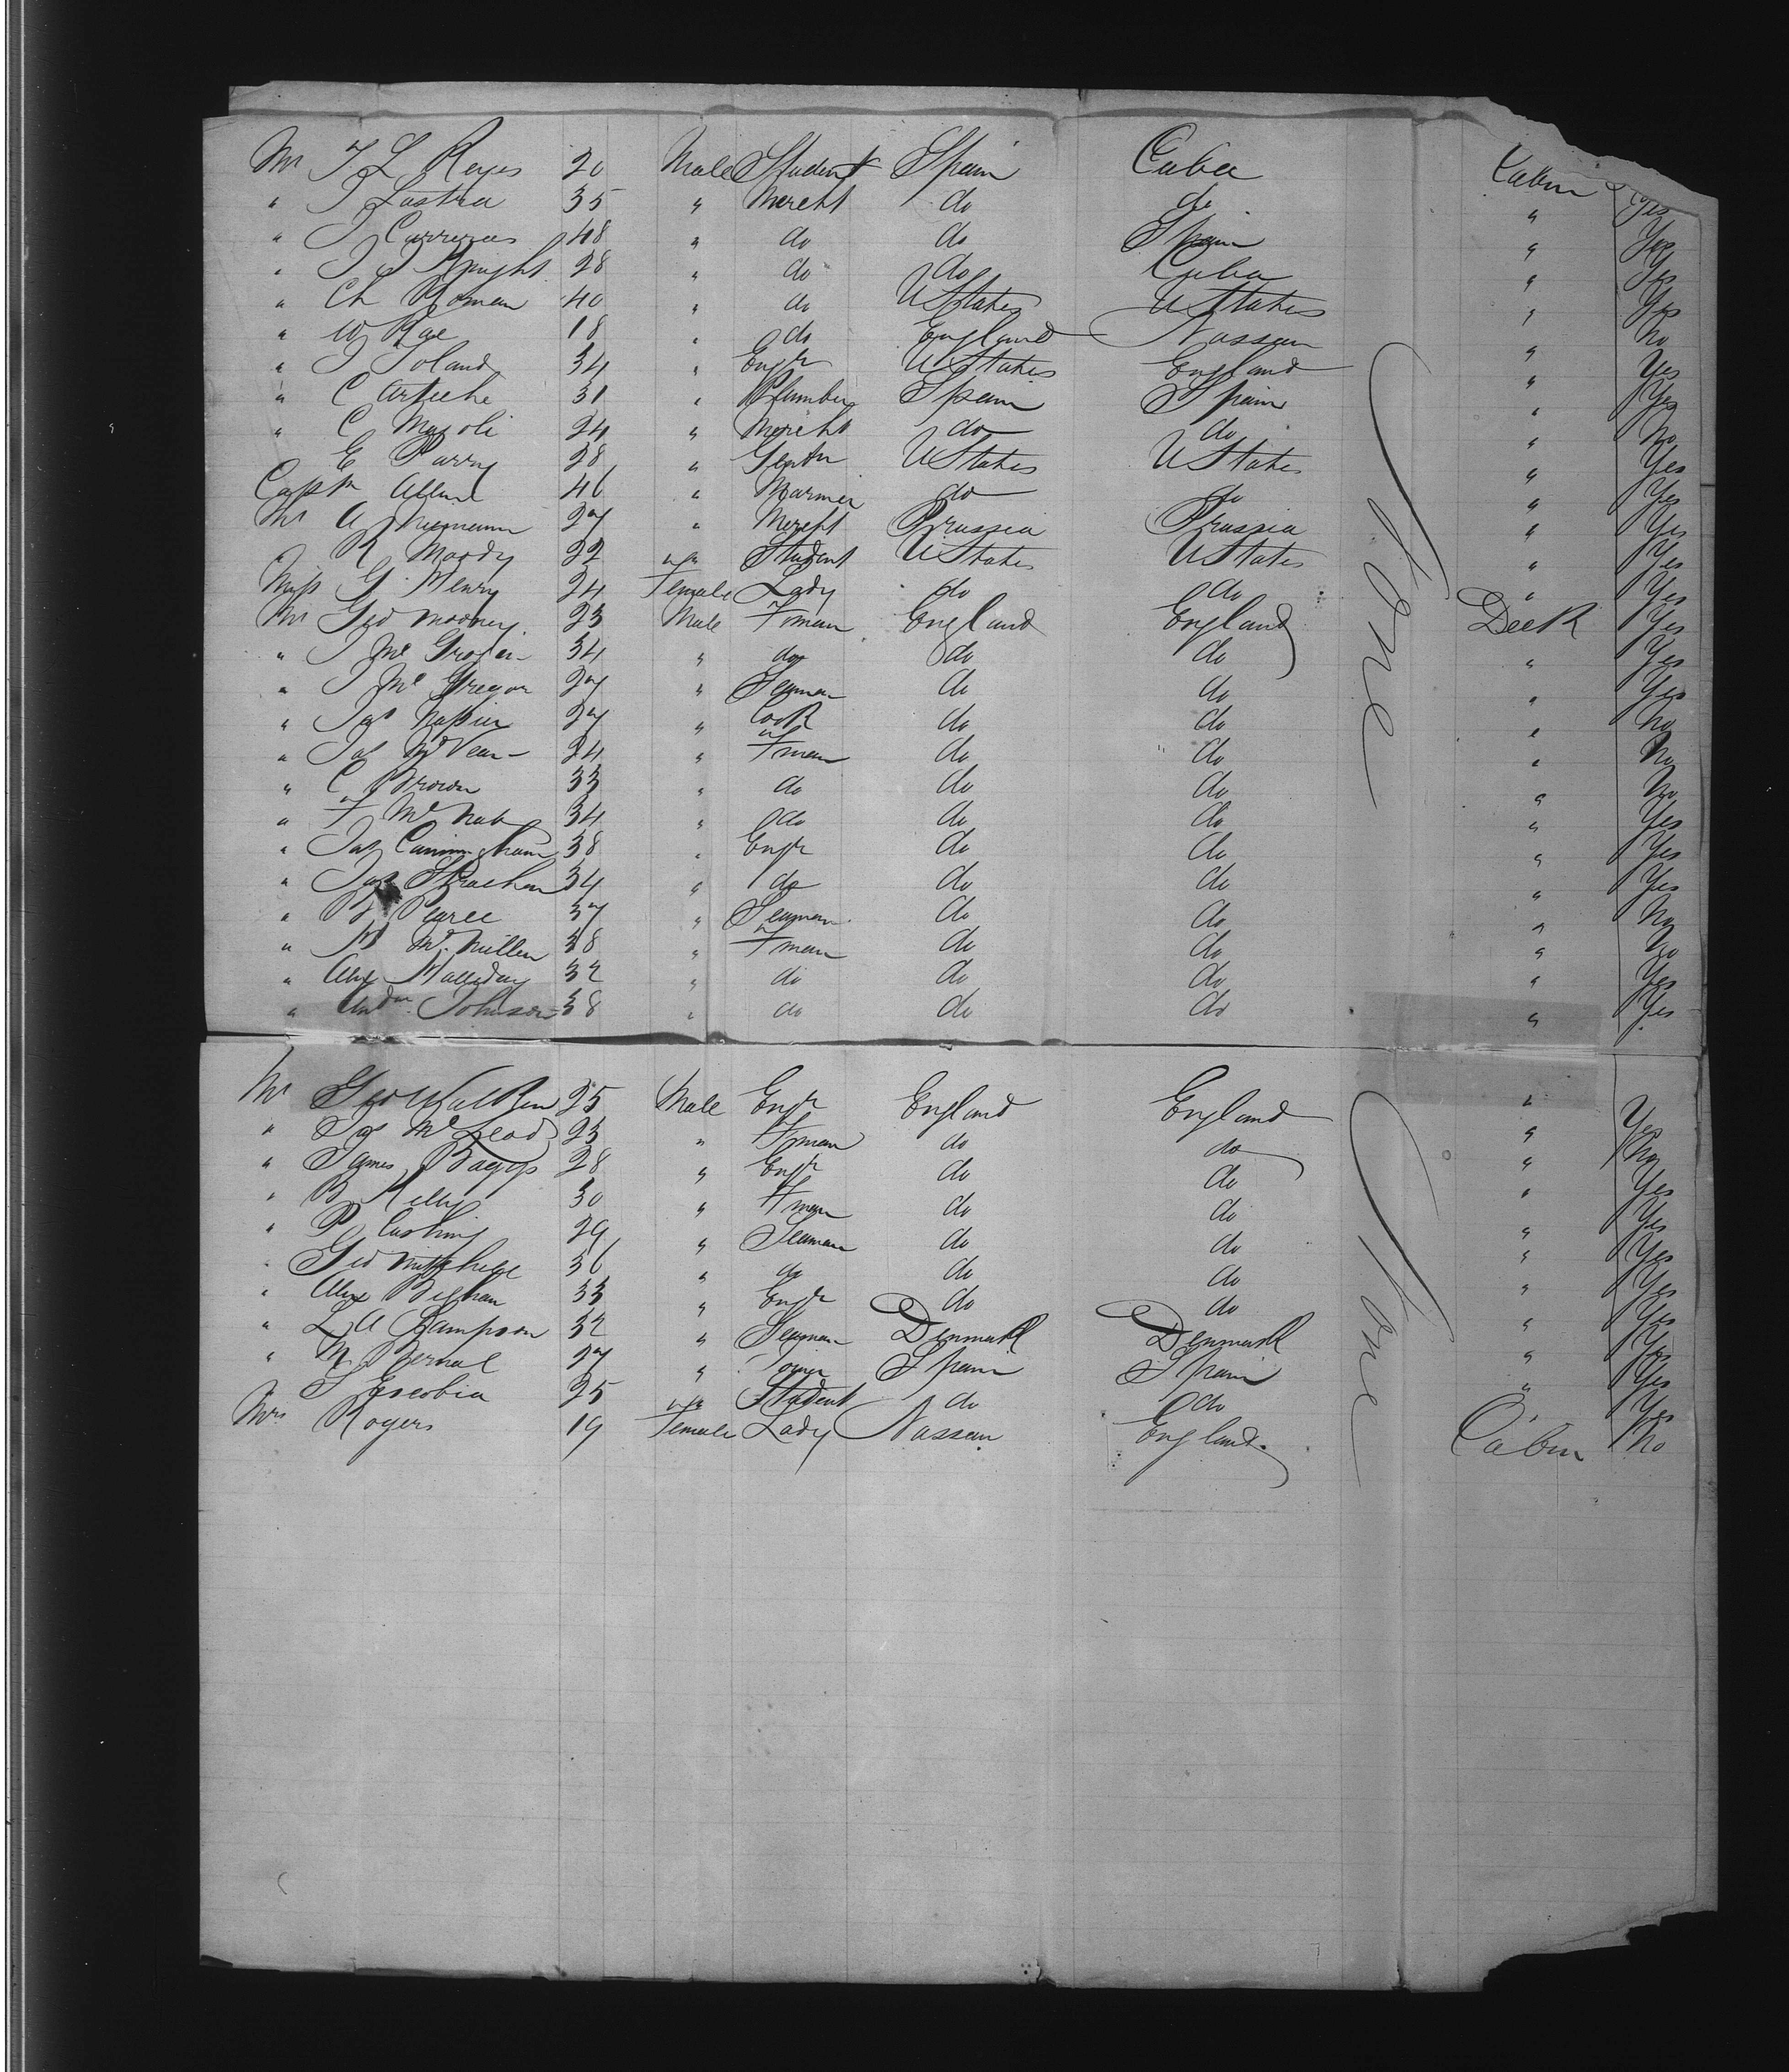 Mr J L Reyes 20 Male Student Spain Cuba Cabin Yes
" J Lastra 35 " Mercht do do " Yes
" J Carreras 48 " do do Spain " Yes
" J J Knight 28 " do do Cuba " Yes
" Ch Roman 40 " do U States U States " No
" W Rae 18 " do England Nassau " Yes
" J Toland 34 " Engr U States England " Yes
" C Arteche 31 " Plumber Spain Spain " No
" C Mazoli 24 " Mercht do do " Yes
E Parry 28 " Gentn U States U States " Yes
Captn Allen 46 " Mariner do do " Yes
Mr A Niemann 27 " Mercht Prussia Prussia " Yes
" R Moody 22 " Student U States U States " Yes
Miss G Henry 24 Female Lady do do " Yes
Mr Geo Mooney 23 Male Fman England England Deck Yes
" J Mc 34 " do do do " Yes
" J Mc Gregor 27 " Seaman do do " No
" Jas Napier 27 " Cook do do " No
" Jas McVean 24 " Fman do do " No
" C Brown 33 " do do do " Yes
" F McNab 34 " do do do " Yes
" Jas Cunningham 38 " Engr do do " Yes
" Jas Strachan 34 " do do do " No
" Pearce 37 " Seaman do do " No
" McMillen 38 " Fman do do " Yes
" Alex Halliday 32 " do do do " Yes
" Andw Johnson 38 " do do do "
None
Mr Geo Walker 25 Male Engr England England " Yes
" Jas McLeod 23 " Fman do do " No
" James Baggs 28 " Engr do do " Yes
" B Kelly 30 " Fman do do " Yes
" P Cushing 29 " Seaman do do " Yes
" Geo Mitchell 36 " do do do " Yes
" Alex 33 " Engr do do " Yes
" L A Sampson 32 " Seaman Denmark Denmark " Yes
" M Bernal 27 " Spain Spain " Yes
" S Escobia 25 " Student do do " Yes
Mrs Rogers 19 Female Lady Nassau England Cabin No
None